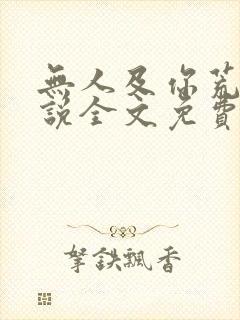 無人及你荒
說全文免費
拏鉄飄香